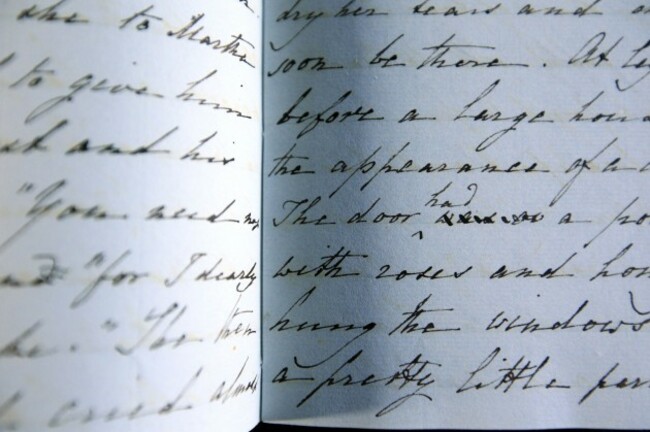 she to Martha
to give him
and his
"You need
"for I dearly
" The then
cried almost
dry her tears and
soon be there. At
before a large
the appearance of a
The door had a
with roses and
hung the windows
a pretty little